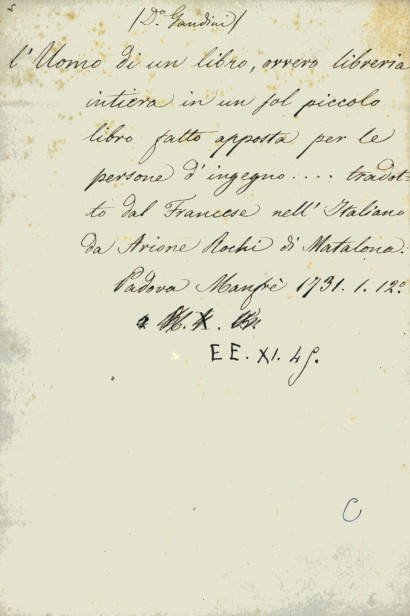 /D.º Gandini/
l'Uomo di un libro, ovvero libreria
intiera in un sol piccolo
libro fatto apposta per le
persone d'ingegno.... tradot-
to dal Francese nell'Italiano
da Arione Rochi di Matalona.
Padova Manfrè 1731. 1. 12º
EE. XI. 45.
C